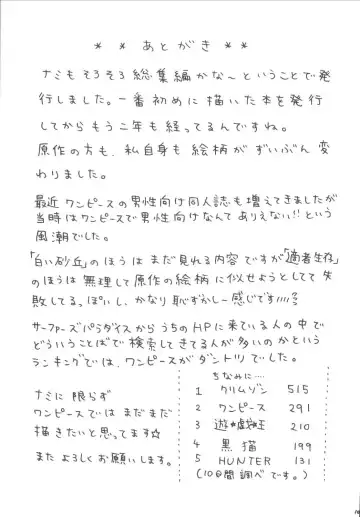 ** あとがき **
ナミもそろそろ総集編かな～ということで発
行しました。一番初めに描いた本を発行
してからもう二年も経ってるんですね。
原作の方も、私自身も絵柄がずいぶん変
わりました。
最近ワンピースの男性向け同人誌も増えてきましたが
当時はワンピースで男性向けなんてありえない!!という
風潮でした。
「白い砂丘」のほうはまだ見れる内容ですが「適者生存」
のほうは無理して原作の絵柄に似せようとしてて失
敗してるっぽいし、かなり恥ずかしー感じです
サーファーズパラダイスからうちのHPに来ている人の中で
どういうことばで検索してきてる人が多いのかという
ランキングでは、ワンピースがダントツでした。
ナミに限らず
ワンピースではまだまだ
描きたいと思ってます☆
またよろしくお願いします。
ちなみに…
1 クリムゾン 515
2 ワンピース 291
3 遊戯王 210
4 黒猫 199
5 HUNTER 131
(10日間調べです。)